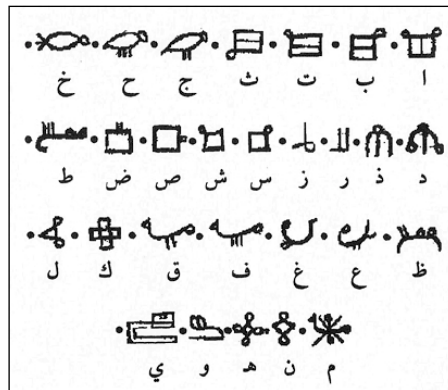 ا ب ت ث ج ح خ
د ذ ر ز س ش ص ض ط
ظ ع غ ف ق ك ل
م ن هـ و ي